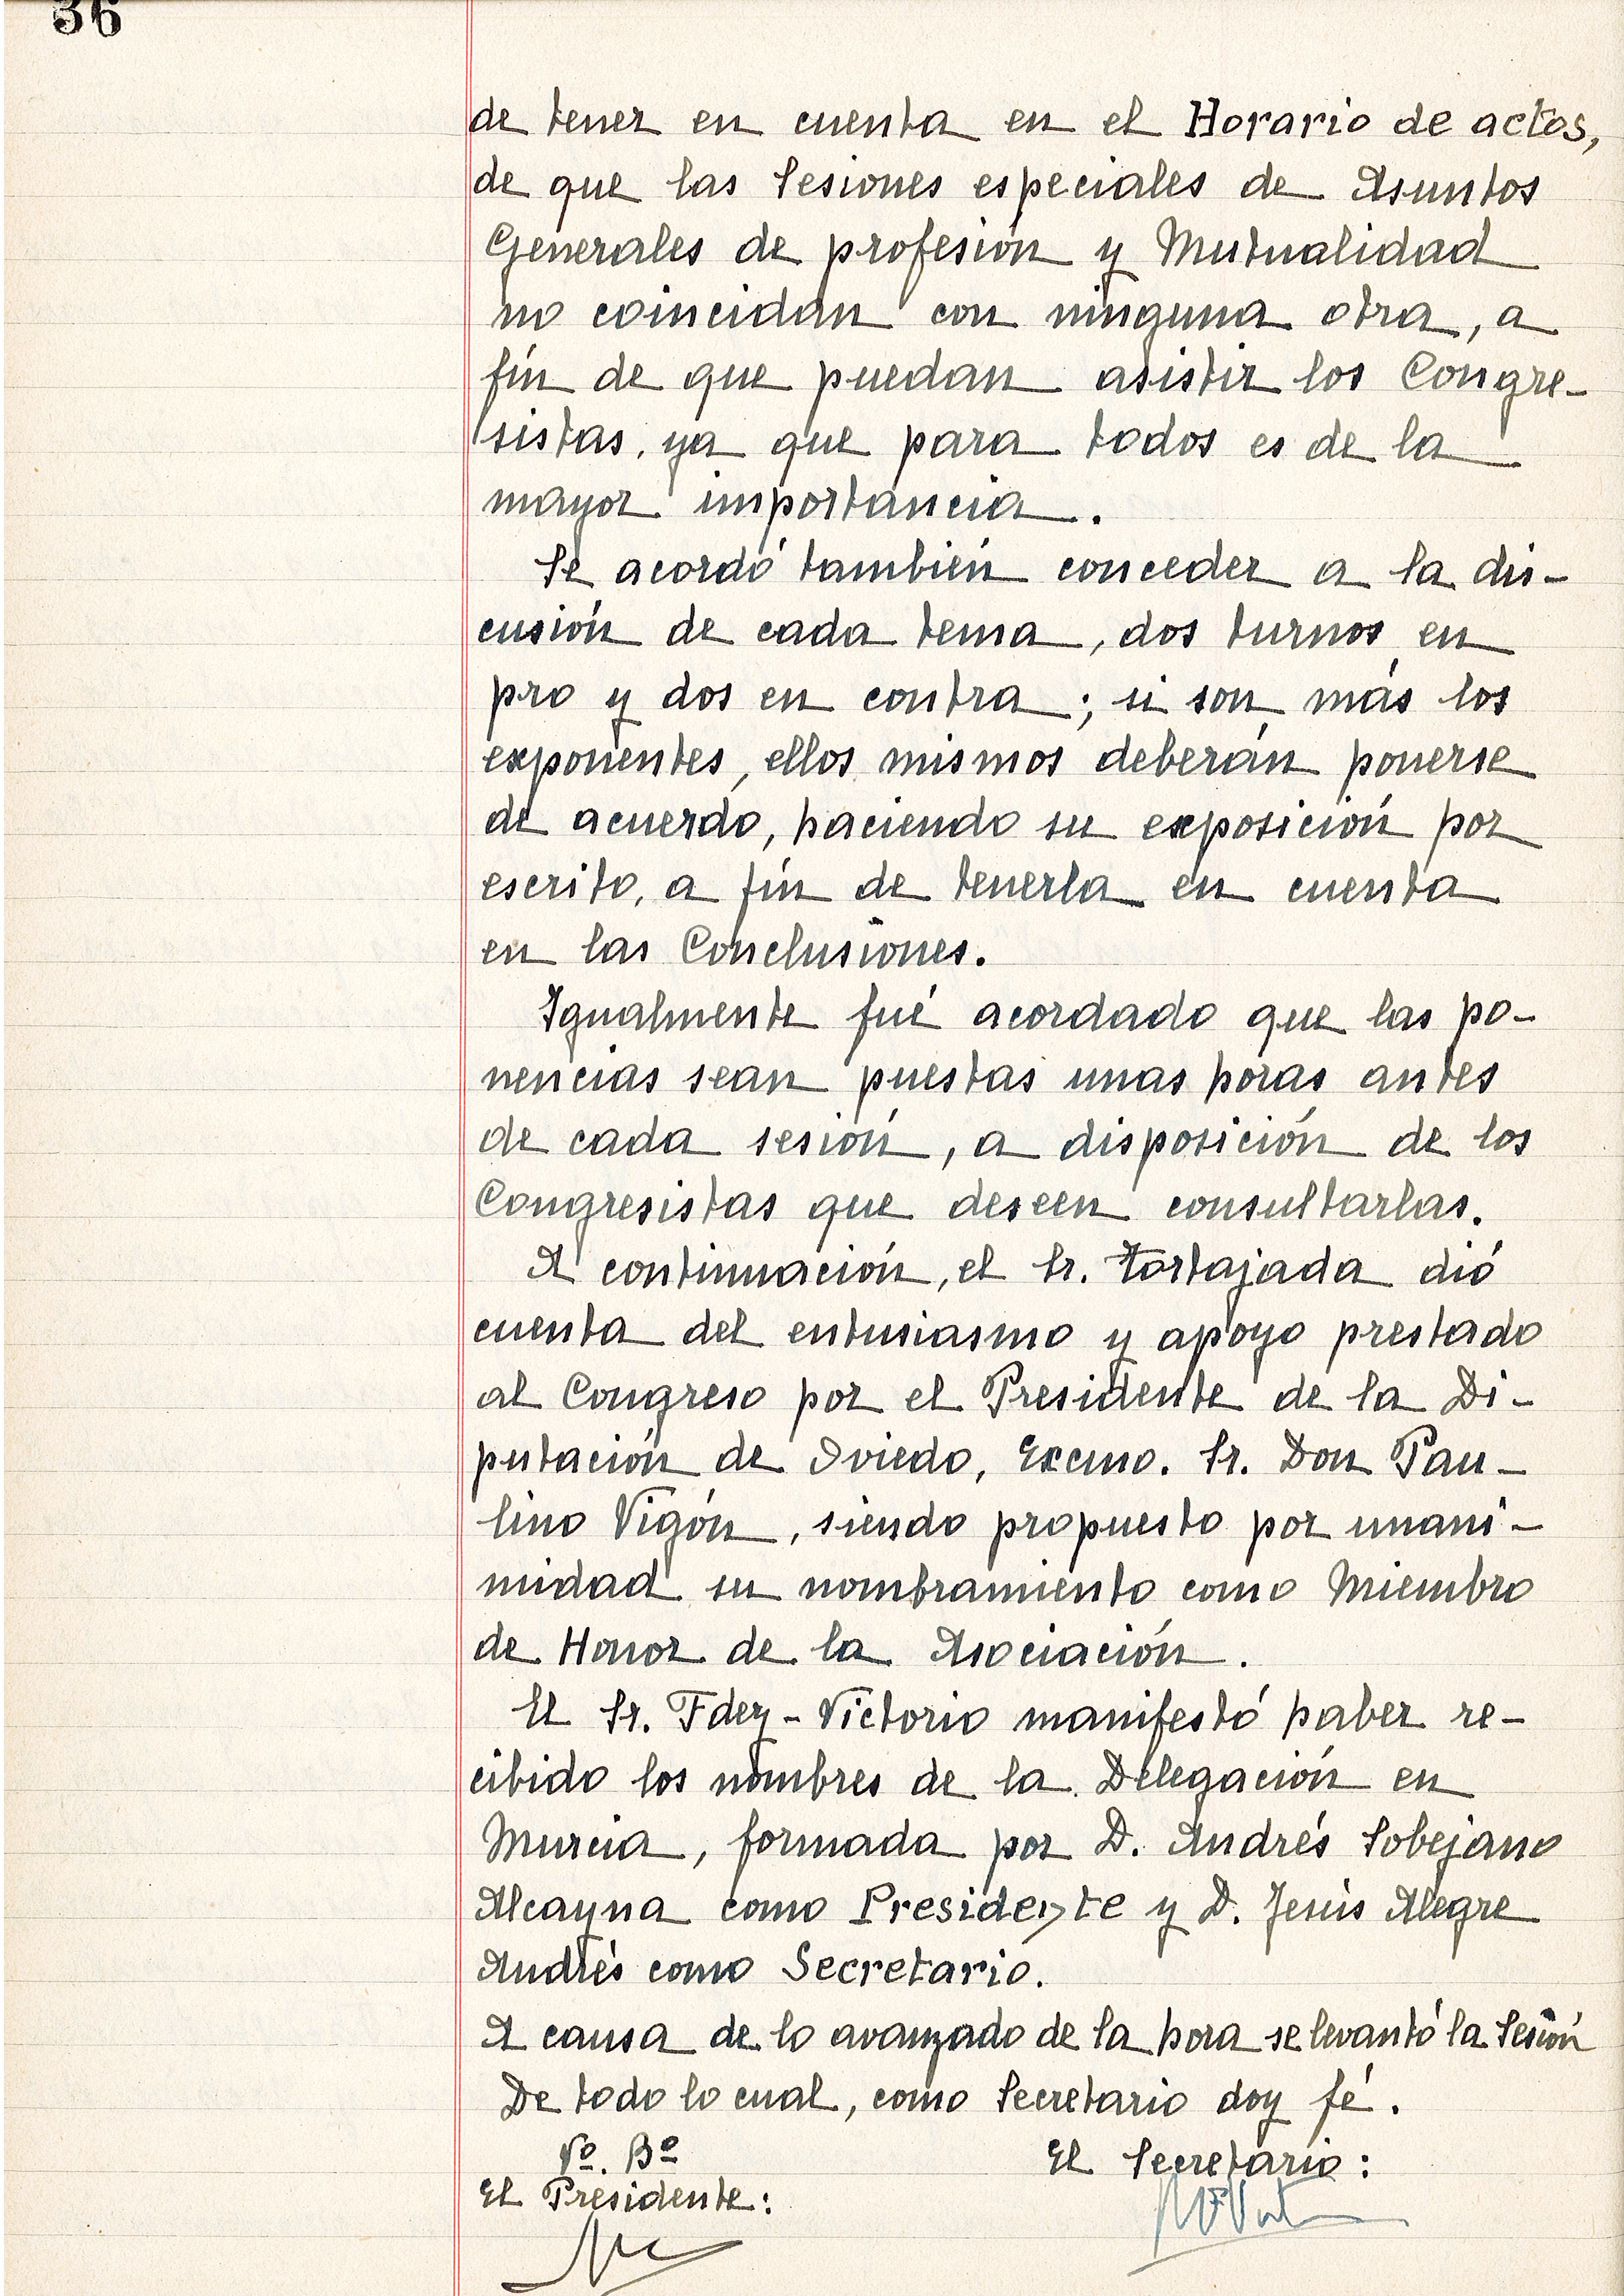 36
de tener en cuenta en el Horario de actos,
de que las Sesiones especiales de Asuntos
Generales de profesión y Mutualidad
no coincidan con ninguna otra, a
fín de que puedan asistir los Congre-
sistas, ya que para todos es de la
mayor importancia.
Se acordó también conceder a la dis-
cusión de cada tema, dos turnos en
pro y dos en contra; si son más los
exponentes, ellos mismos deberán ponerse
de acuerdo, haciendo su exposición por
escrito, a fín de tenerla en cuenta
en las Conclusiones.
Igualmente fué acordado que las po-
nencias sean puestas unas horas antes
de cada sesión, a disposición de los
Congresistas que deseen consultarlas.
A continuación, el Sr. Tortajada dió
cuenta del entusiasmo y apoyo prestado
al Congreso por el Presidente de la Di-
putación de Oviedo, Excmo. Sr. Don Pau-
lino Vigón, siendo propuesto por unani-
midad su nombramiento como Miembro
de Honor de la Asociación.
El Sr. Fdez-Victorio manifestó haber re-
cibido los nombres de la Delegación en
Murcia, formada por D. Andrés Sobejano
Alcayna como Presidente y D. Jesús Alegre
Andrés como Secretario.
A causa de lo avanzado de la hora se levantó la Sesión
De todo lo cual, como Secretario doy fé.
Vº. Bº
El Secretario:
El Presidente: